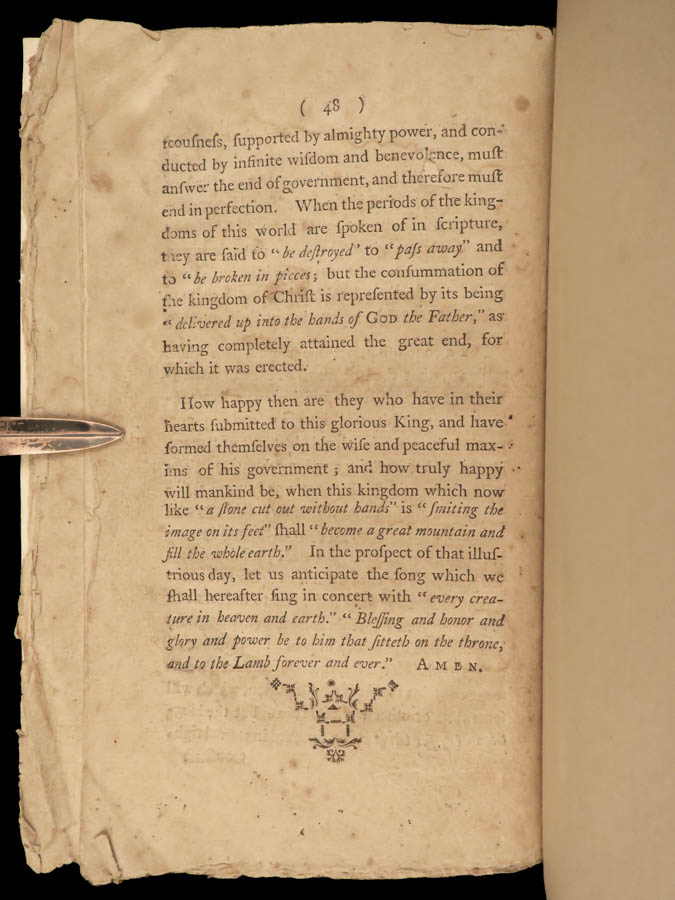 ( 48 )
teouſneſs, ſupported by almighty power, and con-
ducted by infinite wiſdom and benevolence, muſt
anſwer the end of government, and therefore muſt
end in perfection. When the periods of the king-
doms of this world are ſpoken of in ſcripture,
they are ſaid to "be deſtroyed" to "paſs away" and
to "be broken in pieces; but the conſummation of
the kingdom of Chriſt is repreſented by its being
"delivered up into the hands of GOD the Father," as
having completely attained the great end, for
which it was erected.
How happy then are they who have in their
hearts ſubmitted to this glorious King, and have
formed themſelves on the wiſe and peaceful max-
ims of his government; and how truly happy
will mankind be, when this kingdom which now
like "a ſtone cut out without hands" is "ſmiting the
image on its feet" ſhall "become a great mountain and
fill the whole earth." In the proſpect of that illuſ-
trious day, let us anticipate the ſong which we
ſhall hereafter ſing in concert with "every crea-
ture in heaven and earth." "Bleſſing and honor and
glory and power be to him that ſitteth on the throne,
and to the Lamb forever and ever." AMEN.